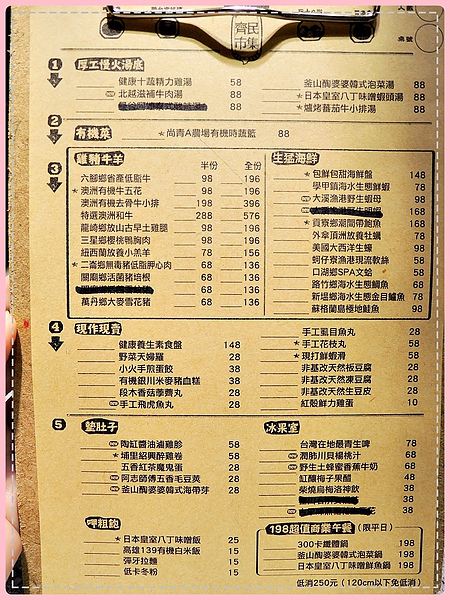 齊民市集
桌號
1 厚工慢火湯底
健康十蔬精力雞湯 58
北越滋補牛肉湯 88
88
釜山酸婆婆韓式泡菜湯 88
★日本皇室八丁味噌蝦頭湯 88
★爐烤蕃茄牛小排湯 88
2 有機菜
★尚青A農場有機時蔬籃 88
3 雞豬牛羊
半份 全份
六腳鄉省產低脂牛 98 196
★澳洲有機牛五花 98 196
澳洲有機去骨牛小排 198 396
特選澳洲和牛 288 576
龍崎鄉放山古早土雞腿 98 196
三星鄉櫻桃鴨胸肉 98 196
紐西蘭放養小羔羊 78 156
★二崙鄉無毒豬低脂胛心肉 68 136
關廟鄉活菌豬培根 68 136
68 136
萬丹鄉大麥雪花豬 68 136
生猛海鮮
★包鮮包甜海鮮盤 148
學甲鎮海水生態鮮蝦 78
大溪漁港野生蝦母 98
168
★貢寮鄉潮間帶鮑魚 168
外傘頂洲放養牡蠣 78
美國大西洋生蠔 98
蚵仔寮漁港現流軟絲 58
口湖鄉SPA文蛤 58
路竹鄉海水生態鯛魚 68
新塭鄉海水生態金目鱸魚 78
蘇格蘭島極地鮭魚 98
4 現作現賣
健康養生素食盤 148
野菜天婦羅 28
小火手煎蛋餃 38
有機銀川米麥豬血糕 38
段木香菇摃貢丸 28
手工飛虎魚丸 28
手工虱目魚丸 28
★手工花枝丸 58
★現打鮮蝦滑 58
非基改天然板豆腐 28
非基改天然凍豆腐 28
非基改天然生豆皮 28
紅殼鮮力雞蛋 10
5 墊肚子
陶缸醬油滷雞胗 58
★埔里紹興醉雞卷 58
五香紅茶魔鬼蛋 28
阿志師傅五香毛豆莢 28
釜山酸婆婆韓式海帶芽 28
冰果室
台灣在地最青生啤 78
潤肺川貝楊桃汁 68
野生土蜂蜜香蕉牛奶 68
缸釀梅子果醋 48
柴燒烏梅洛神飲 38
38
38
呷粗飽
★日本皇室八丁味噌飯 25
高雄139有機白米飯 15
彈牙拉麵 15
低卡冬粉 15
198超值商業午餐(限平日)
300卡纖體鍋 198
釜山酸婆婆韓式泡菜鍋 198
日本皇室八丁味噌鮮魚鍋 198
低消250元(120cm以下免低消)